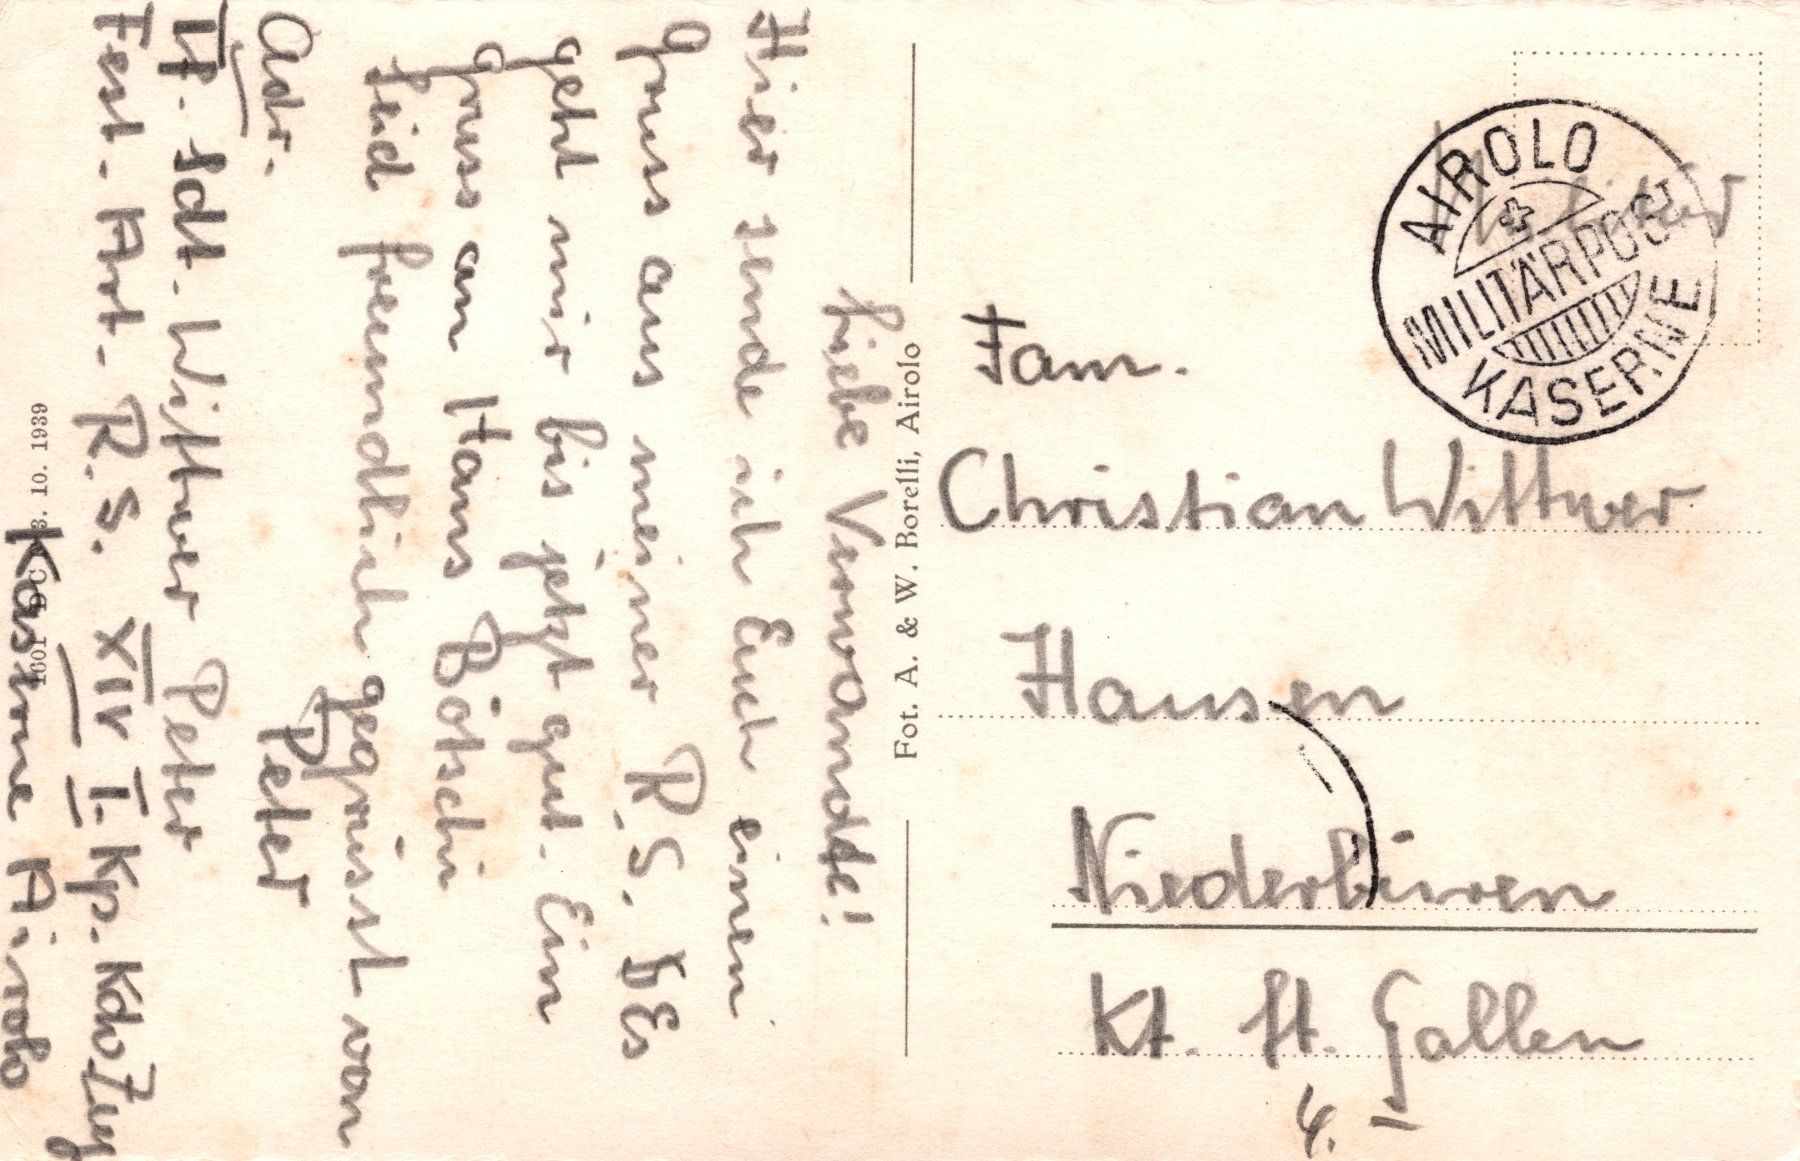 Liebe Verwandte!
Hier sende ich Euch einen
Gruss aus meiner R.S. Es
geht mir bis jetzt gut. Ein
Gruss an Hans Bötschi
Seid freundlich gegrüsst von
Peter
Adr.
Tf. Sdt. Wittwer Peter
Fest. Art. R.S. XIV I. Kp. Kdo Zug
Kaserne Airolo
3. 10. 1939
Fot. A. & W. Borelli, Airolo
Militär
AIROLO
MILITÄRPOST
KASERNE
Fam.
Christian Wittwer
Hausen
Niederbüren
Kt. St. Gallen